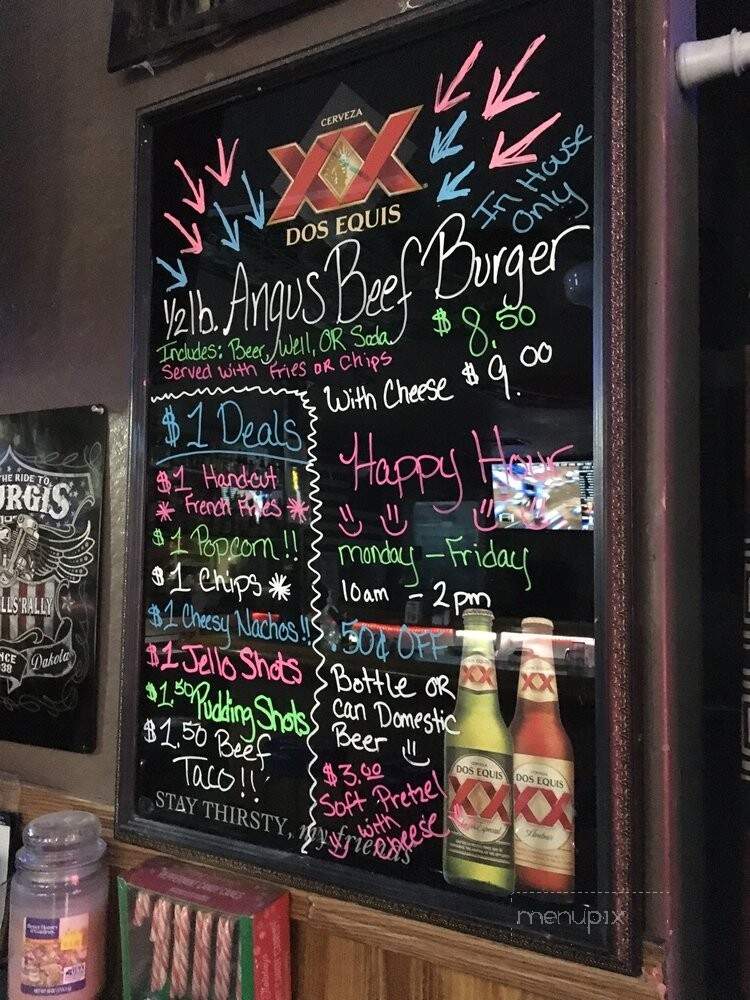 CERVEZA
XX
DOS EQUIS
In House
Only
1/2 lb. Angus Beef Burger
$8.50
Includes: Beer, Well, OR Soda
Served with Fries OR Chips
With Cheese $9.00
$1 Deals
$1 Handcut
* French Fries *
$1 Popcorn!!
$1 Chips *
$1 Cheesy Nachos!!
$1 Jello Shots
$1.50 Pudding Shots
$1.50 Beef
Taco!!
Happy Hour
monday - Friday
10am - 2pm
50¢ Off
Bottle OR
can Domestic
Beer
$3.00
Soft Pretzel
with
cheese
STAY THIRSTY, my friends
XX
DOS EQUIS
XX
XX
DOS EQUIS
XX
THE RIDE TO
URGIS
LLS RALLY
NCE
38
Dakota
menupix